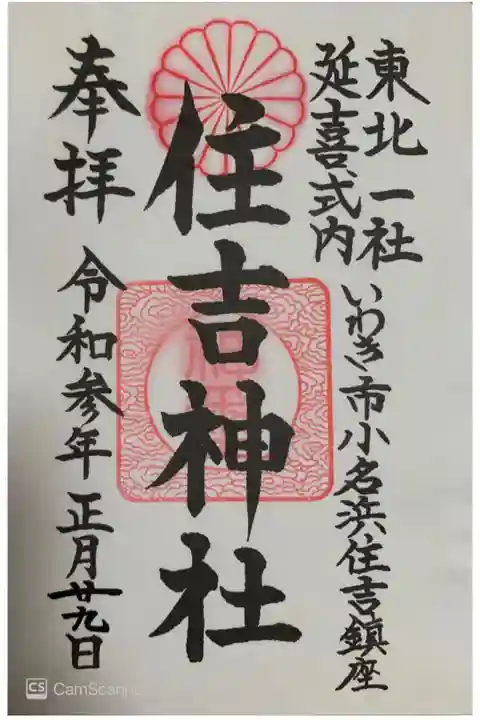 東北一社
延喜式内
いわき市小名浜住吉鎮座
住吉神社
奉拝
令和参年正月廿九日
CS CamScanne